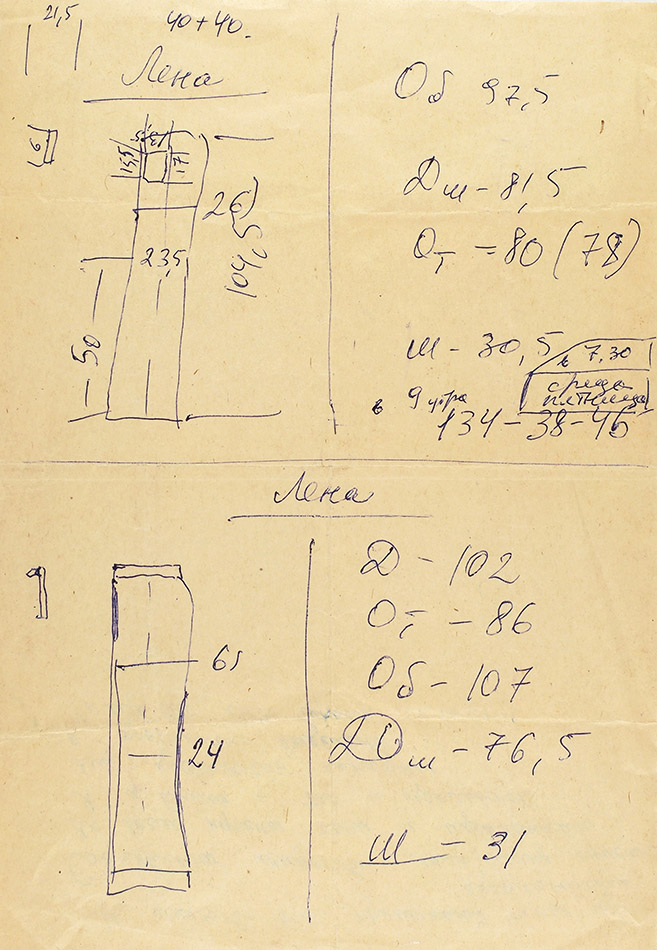 21,5
40+40.
Лена
6
13,5
15,5
17
26
104,5
23,5
50
Об 97,5
Дш - 81,5
От = 80 (78)
Ш - 30,5
в 7.30
среда
пятница
в 9 утра
134-38-46
Лена
65
24
Д - 102
От - 86
Об - 107
Дш - 76,5
Ш - 31